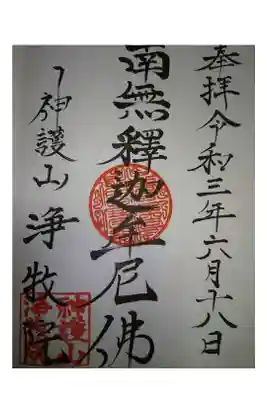 奉拝 令和三年六月十八日
南無釋迦牟尼佛
神護山 浄牧院
神護山
浄牧院